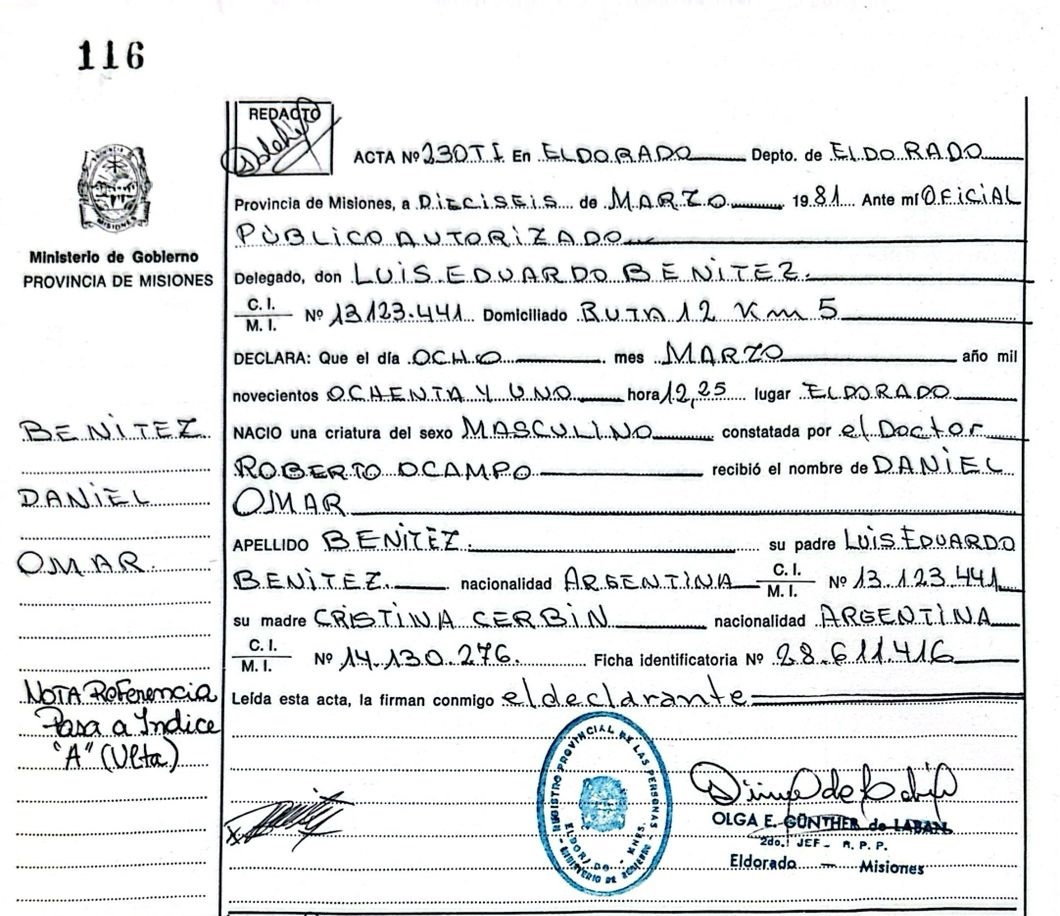 116
REDACTO
ACTA Nº 230TI En ELDORADO Depto. de ELDORADO
Provincia de Misiones, a DIECISEIS de MARZO 1981 Ante mí OFICIAL
PÚBLICO AUTORIZADO
Ministerio de Gobierno
PROVINCIA DE MISIONES
Delegado, don LUIS EDUARDO BENITEZ.
C. I.
M. I. Nº 13.123.441 Domiciliado RUTA 12 Km 5
DECLARA: Que el día OCHO mes MARZO año mil
novecientos OCHENTA Y UNO hora 12,25 lugar ELDORADO
NACIO una criatura del sexo MASCULINO constatada por el Doctor
ROBERTO OCAMPO recibió el nombre de DANIEL
OMAR
APELLIDO BENITEZ. su padre LUIS EDUARDO
BENITEZ. nacionalidad ARGENTINA C. I. M. I. Nº 13.123.441
su madre CRISTINA CERBIN nacionalidad ARGENTINA
C. I.
M. I. Nº 14.130.276. Ficha identificatoria Nº 28.611.416
Leída esta acta, la firman conmigo el declarante
BENITEZ
DANIEL
OMAR.
NOTA Referencia
Pasa a Indice
"A" (Vlta)
REGISTRO PROVINCIAL DE LAS PERSONAS
ELDORADO - MNES.
MINISTERIO DE GOBIERNO
OLGA E. GÜNTHER de LABAN
2do. JEF - R. P. P.
Eldorado — Misiones